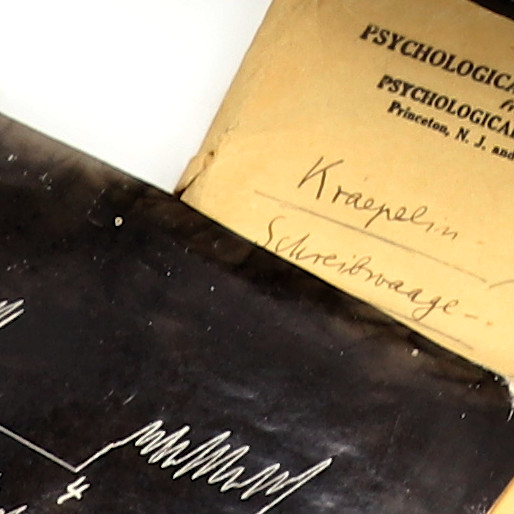 PSYCHOLOGICA
PSYCHOLOGICAL
Princeton, N. J. and
Kraepelin
Schreibwaage-
4